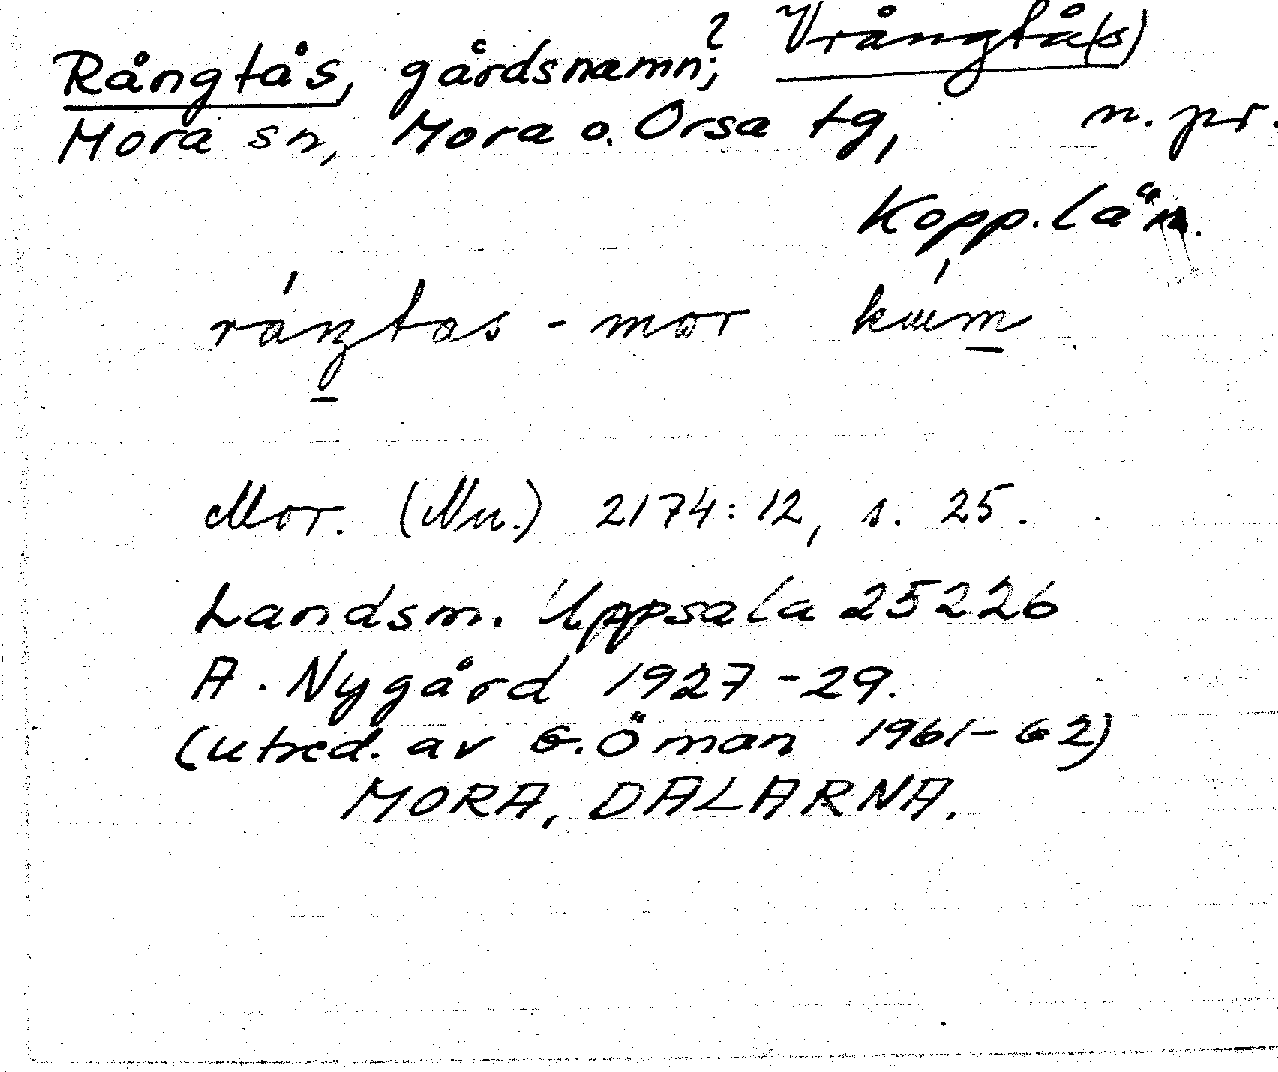 Rångtås, gårdsnamn?; Vrångtå(s)
Mora sn, Mora o. Orsa tg, n. pr.
Kopp. län.
-mor
Mor. (Mn.) 2174:12, s. 25.
Landsm. Uppsala 25226
A. Nygård 1927-29.
(utred. av G. Öman 1961-62)
MORA, DALARNA.